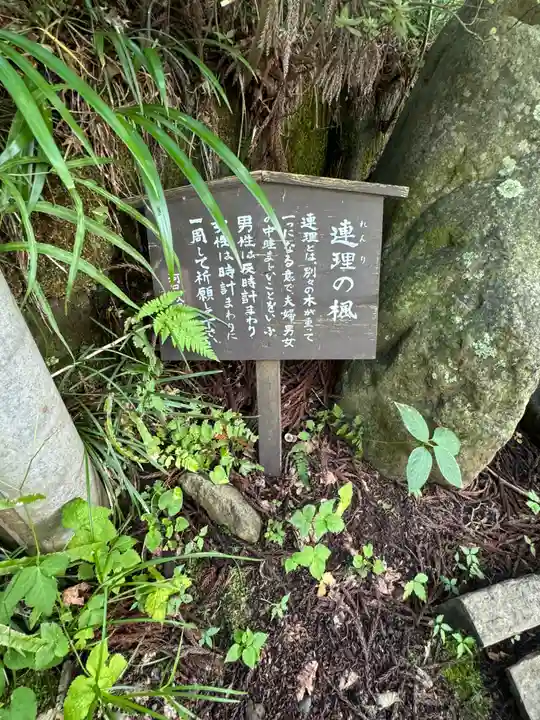 連理の楓
れんり
連理とは、別々の木が重って
一つになる意で夫婦男女
の中睦まじいことをいふ
男性は反時計まわり
女性は時計まわりに
一周して祈願して下さい